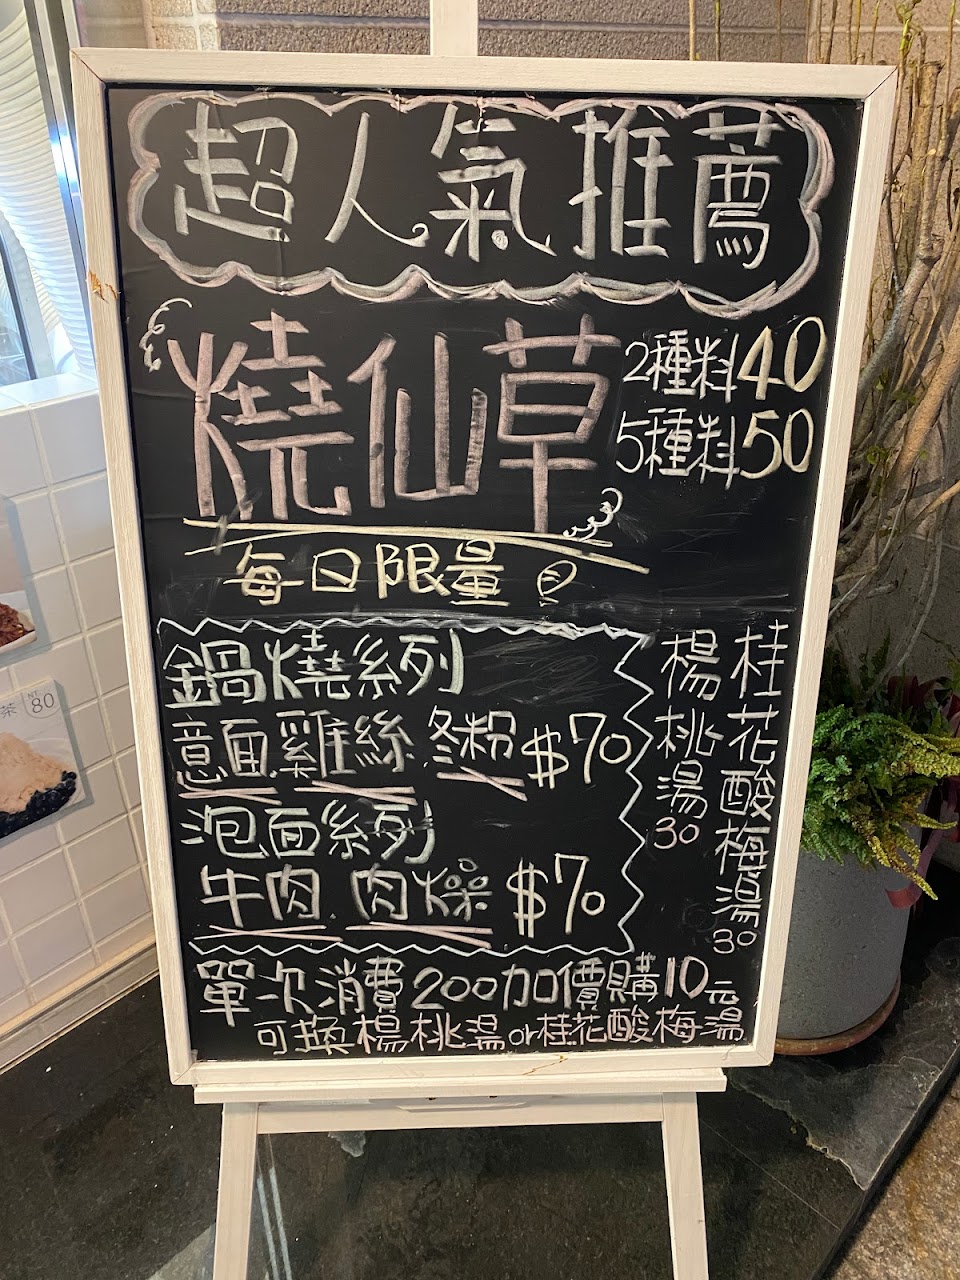 超人氣推薦
燒仙草
2種料40
5種料50
每日限量
鍋燒系列
意面 雞絲 冬粉 $70
泡面系列
牛肉 肉燥 $70
桂花酸梅湯30
楊桃湯30
單次消費200加價購10元
可換楊桃湯or桂花酸梅湯
茶
NT
80